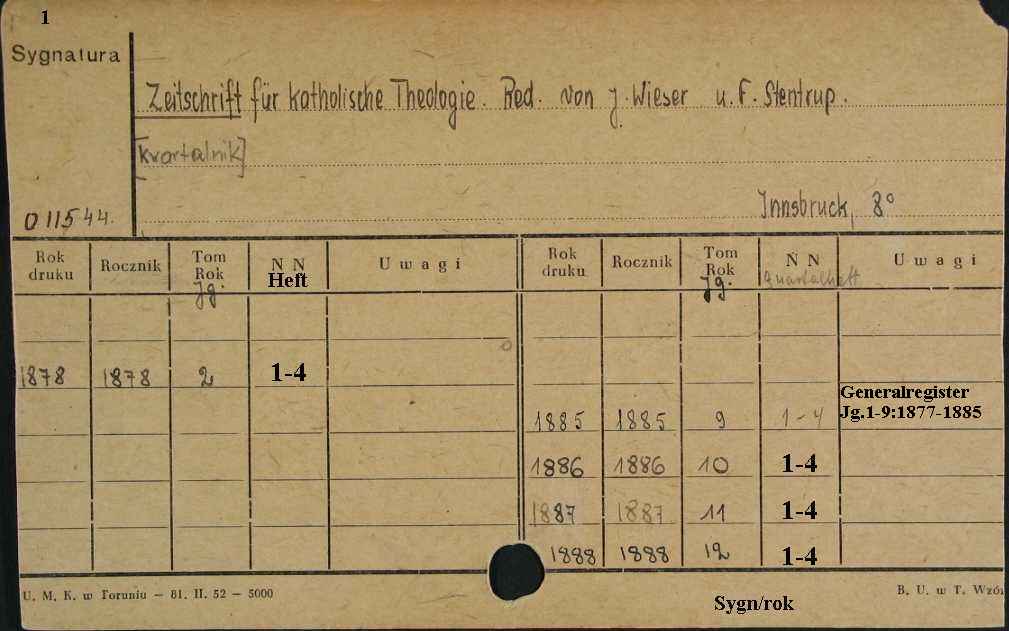 1
Sygnatura
Zeitschrift für katholische Theologie. Red. von J. Wieser u. F. Stentrup.
[kwartalnik]
Innsbruck, 8°
011544.
Rok druku Rocznik Tom Rok Jg. N N Heft Uwagi Rok druku Rocznik Tom Rok Jg. N N Quartalheft Uwagi
1878 1878 2 1-4
Generalregister
1885 1885 9 1-4 Jg.1-9:1877-1885
1886 1886 10 1-4
1887 1887 11 1-4
1888 1888 12 1-4
U. M. K. w Toruniu — 81. II. 52 — 5000 B. U. w T. Wzó
Sygn/rok